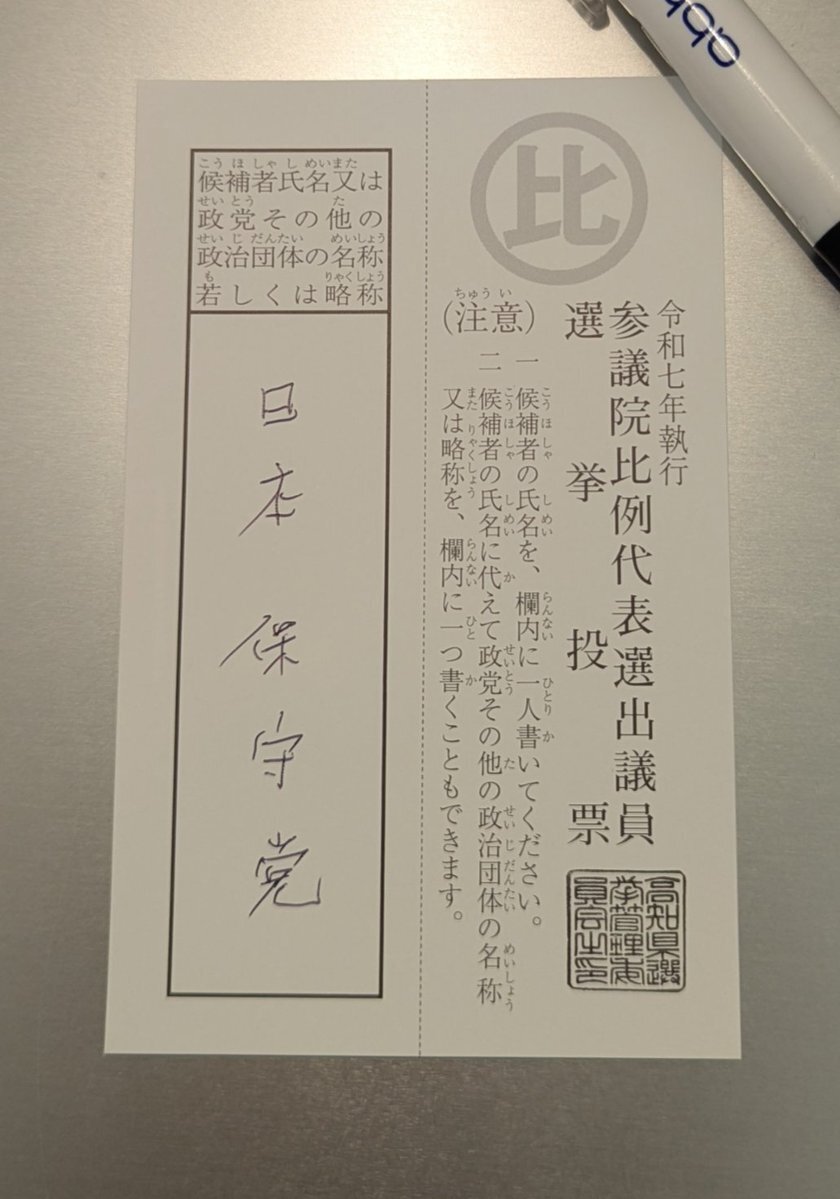 abk
比
令和七年執行
参議院比例代表選出議員
選挙投票
高知県選
挙管理委
員会之印
(注意)
一 候補者の氏名を、欄内に一人書いてください。
二 候補者の氏名に代えて政党その他の政治団体の名称
又は略称を、欄内に一つ書くこともできます。
候補者氏名又は
政党その他の
政治団体の名称
若しくは略称
日本保守党